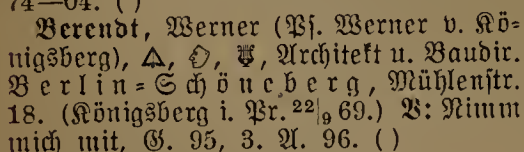 74—04. ( )
Berendt, Werner (Ps. Werner v. Kö-
nigsberg), Architekt u. Baudir.
Berlin-Schöneberg, Mühlenstr.
18. (Königsberg i. Pr. 22/9 69.) V: Nimm
mich mit, G. 95, 3. A. 96. ( )